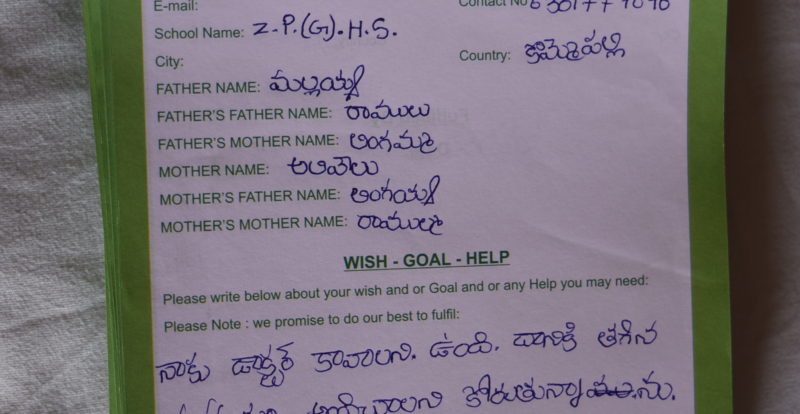 E-mail:
Contact No
School Name: Z.P.(G).H.S.
City:
Country: కొమ్మెపల్లి
FATHER NAME: మల్లయ్య
FATHER'S FATHER NAME: రాములు
FATHER'S MOTHER NAME: లింగమ్మ
MOTHER NAME: అలివేలు
MOTHER'S FATHER NAME: లింగయ్య
MOTHER'S MOTHER NAME: రాములమ్మ
WISH - GOAL - HELP
Please write below about your wish and or Goal and or any Help you may need:
Please Note : we promise to do our best to fulfil:
నాకు డాక్టర్ కావాలని. ఉంది. దానికి తగిన
కోరుతున్నాను.